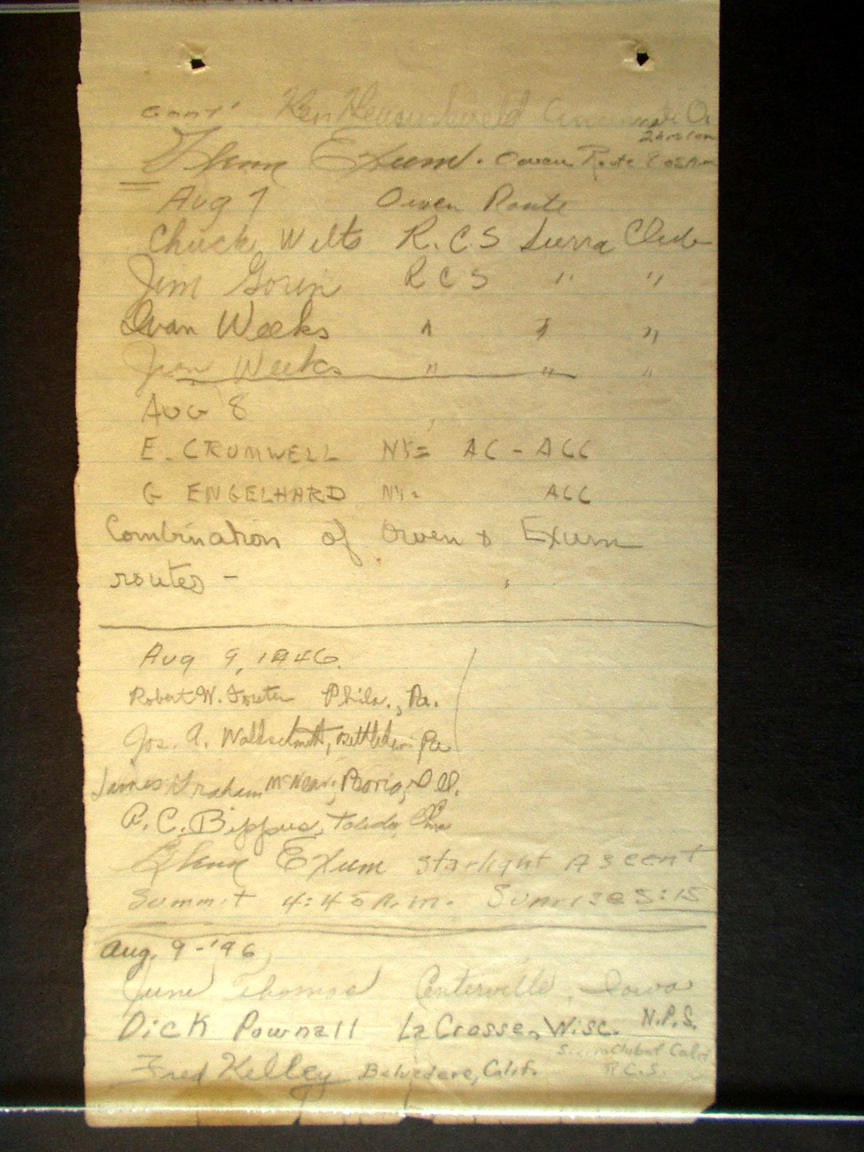 cont'
Glenn Exum. Owen Route 8:05 A.m
Aug 7 Owen Route
Chuck Wilts R.C S Sierra Club
Jim Gorin R C S " "
Ivan Weeks " " "
Jean Weeks " " "
AUG 8
E. CROMWELL NY= AC - ACC
G ENGELHARD NY= ACC
Combination of Owen & Exum
routes -
Aug 9, 1946.
Robert W. Foster Phila., Pa.
Jos. A. Pa
James Graham McNear, Peoria, Ill.
A. C. Bippus, Toledo, Ohio
Glenn Exum Starlight Ascent
Summit 4:45 A.m. Sunrise 5:15
Aug. 9 - '46
June Thomas Centerville, Iowa
Dick Pownall La Crosse, Wisc. N.P.S.
Sierra Club of Calif
Fred Kelley Belvedere, Calif. R.C.S.